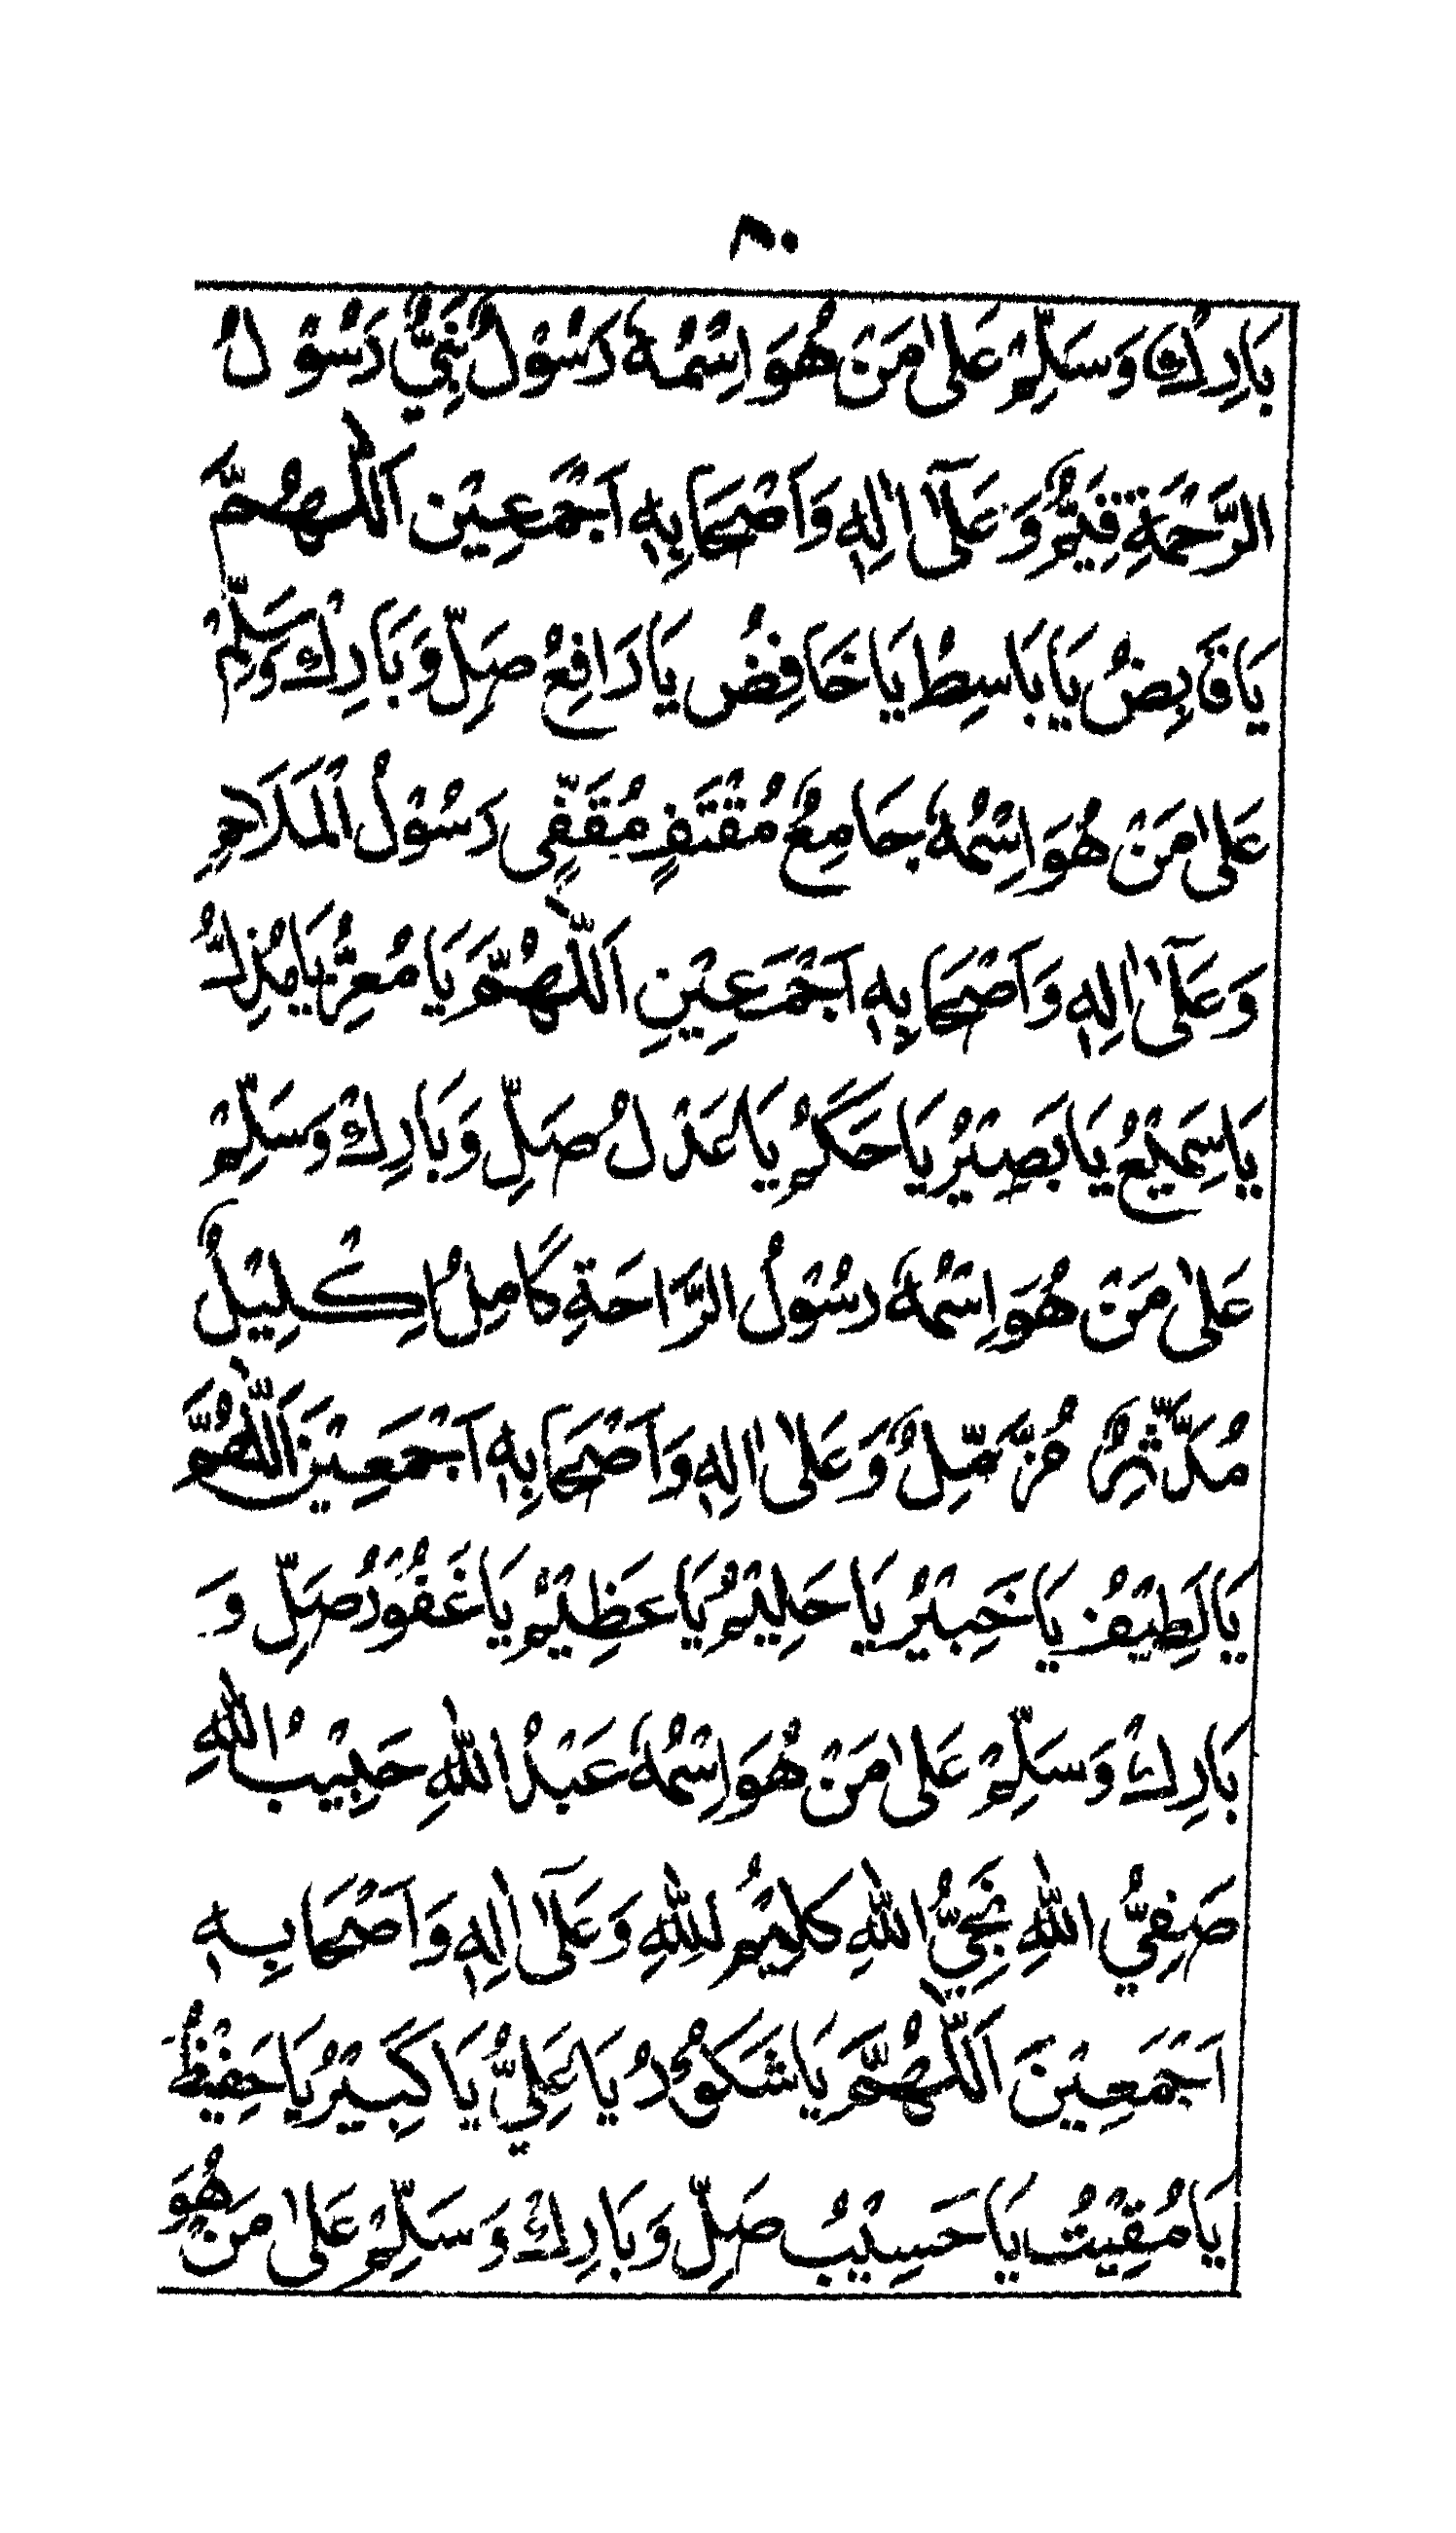 ٣٠
بَارِكْ وَسَلِّمْ عَلٰى مَنْ هُوَ اِسْمُهٗ رَسُوْلٌ نَبِيٌّ رَسُوْلُ
الرَّحْمَةِ قَيِّمٌ وَعَلٰٓى اٰلِهٖ وَاَصْحَابِهٖ اَجْمَعِيْنَ اَللّٰهُمَّ
يَا قَابِضُ يَا بَاسِطُ يَا خَافِضُ يَا رَافِعُ صَلِّ وَبَارِكْ وَسَلِّمْ
عَلٰى مَنْ هُوَ اِسْمُهٗ جَامِعٌ مُقْتَفٍ مُقَفِّى رَسُوْلُ الْمَلَاحِمِ
وَعَلٰٓى اٰلِهٖ وَاَصْحَابِهٖ اَجْمَعِيْنَ اَللّٰهُمَّ يَا مُعِزُّ يَا مُذِلُّ
يَا سَمِيْعُ يَا بَصِيْرُ يَا حَكَمُ يَا عَدْلُ صَلِّ وَبَارِكْ وَسَلِّمْ
عَلٰى مَنْ هُوَ اِسْمُهٗ رَسُوْلُ الرَّاحَةِ كَامِلٌ اِكْلِيْلٌ
مُدَّثِّرٌ مُزَّمِّلٌ وَعَلٰى اٰلِهٖ وَاَصْحَابِهٖ اَجْمَعِيْنَ اَللّٰهُمَّ
يَا لَطِيْفُ يَا خَبِيْرُ يَا حَلِيْمُ يَا عَظِيْمُ يَا غَفُوْرُ صَلِّ وَ
بَارِكْ وَسَلِّمْ عَلٰى مَنْ هُوَ اِسْمُهٗ عَبْدُ اللّٰهِ حَبِيْبُ اللّٰهِ
صَفِيُّ اللّٰهِ نَجِيُّ اللّٰهِ كَلِيْمُ اللّٰهِ وَعَلٰٓى اٰلِهٖ وَاَصْحَابِهٖ
اَجْمَعِيْنَ اَللّٰهُمَّ يَا شَكُوْرُ يَا عَلِيُّ يَا كَبِيْرُ يَا حَفِيْظُ
يَا مُقِيْتُ يَا حَسِيْبُ صَلِّ وَبَارِكْ وَسَلِّمْ عَلٰى مَنْ هُوَ